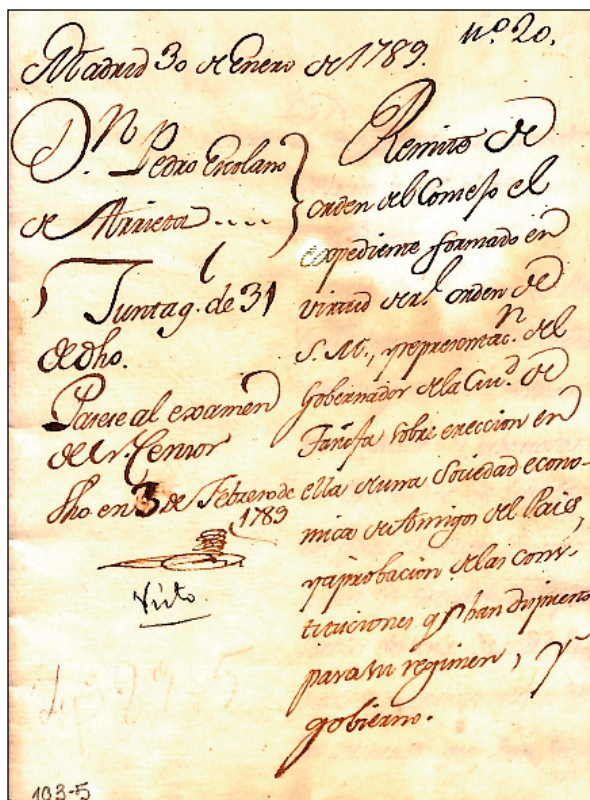 nº 20.
Madrid 30 de Enero de 1789.
D.n Pedro Escolano
de Arrieta....
Junta g. de 31
de dho.
Pasese al examen
del Sr. Censor
fho en 3 de Febrero de
1789
Visto
Remite de
orden del Consejo el
expediente formado en
virtud de rl. orden de
S. M., y representac.n del
Gobernador de la Ciud. de
Tarifa sobre ereccion en
ella de una Sociedad econo-
mica de Amigos del Pais,
y aprobacion de las cons-
tituciones q.e han dispuesto
para su regimen, y
gobierno.
103-5